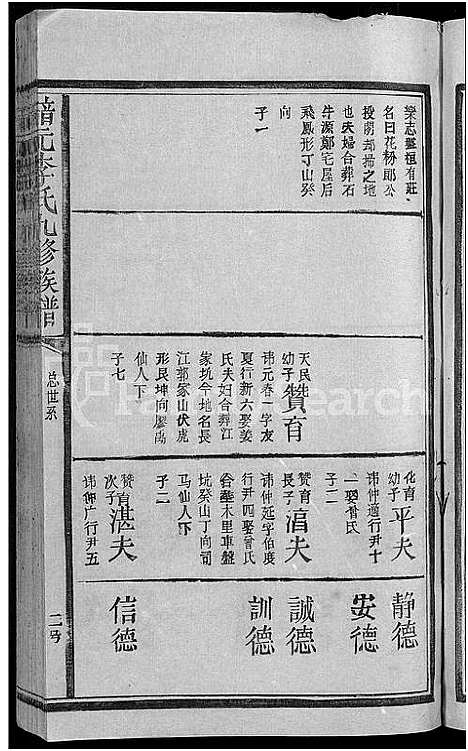 樂志藍祖有莊
名曰花粉郎公
投閒却掃之地
也夫婦合葬石
牛源鄭宅屋后
飛鳳形丁山癸
向
子一
天民
幼子
贊育
諱元春一字友
夏行新六娶姜
氏夫婦合葬江
家坑今地名長
江郭家山伏虎
形艮坤向廖禹
仙人下
子七
化育
幼子
平夫
諱仲通行尹十
一娶曾氏
子二
贊育
長子
湻夫
諱仲延字伯度
行尹四娶曾氏
合葬木里車盤
坑癸山丁向司
马仙人下
子二
贊育
次子
湛夫
諱仲广行尹五
静德
安德
誠德
訓德
信德
李氏九修族譜
总世系